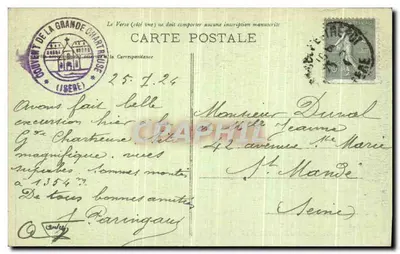 Le Verso (côté vue) ne doit comporter aucune inscription manuscrite
CARTE POSTALE
COUVENT DE LA GRANDE CHARTREUSE
(ISÈRE)
la Correspondance
25/7/24
Avons fait belle
excursion hier
Gde Chartreuse
magnifique, vues
superbes sommes montés
à 1354m
De tous bonnes amitiés
Monsieur Duval
Jeanne
42 avenue Ste Marie
St Mandé
Seine
CPARAMA